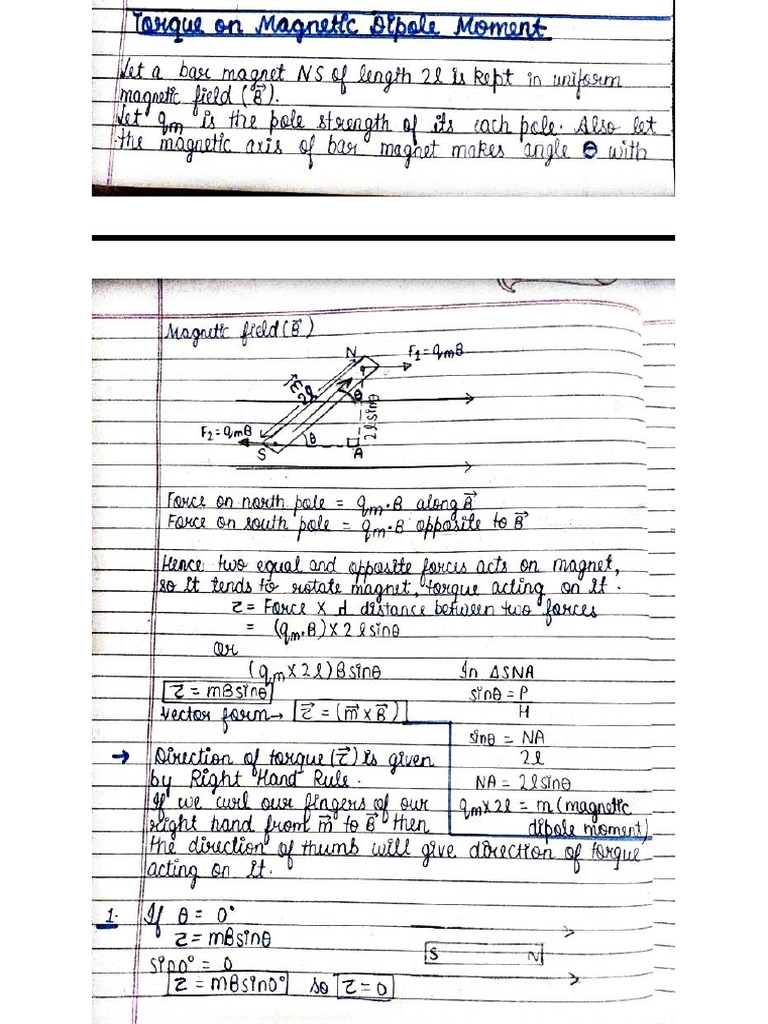 Torque on Magnetic Dipole Moment
Let a bar magnet NS of length 2l is kept in uniform
magnetic field (B⃗).
Let qm is the pole strength of its each pole. Also let
the magnetic axis of bar magnet makes angle θ with
Magnetic field (B⃗)
N
F1 = qmB
m⃗
2l
θ
2lsinθ
F2 = qmB
θ
S
A
Force on north pole = qm.B along B⃗
Force on south pole = qm.B opposite to B⃗
Hence two equal and opposite forces acts on magnet,
so it tends to rotate magnet, torque acting on it.
τ = Force × d distance between two forces
= (qm.B) × 2lsinθ
or
(qm × 2l) B sinθ
τ = mBsinθ
vector form → τ⃗ = (m⃗ × B⃗)
In ΔSNA
sinθ = P/H
sinθ = NA/2l
NA = 2lsinθ
qm × 2l = m (magnetic
dipole moment)
→ Direction of torque (τ⃗) is given
by Right Hand Rule.
If we curl our fingers of our
right hand from m⃗ to B⃗ then
the direction of thumb will give direction of torque
acting on it.
1. If θ = 0°
τ = mBsinθ
sin0° = 0
τ = mBsin0° so τ = 0
S N